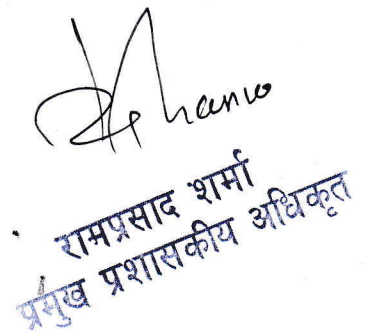 रामप्रसाद शर्मा
प्रमुख प्रशासकीय अधिकृत